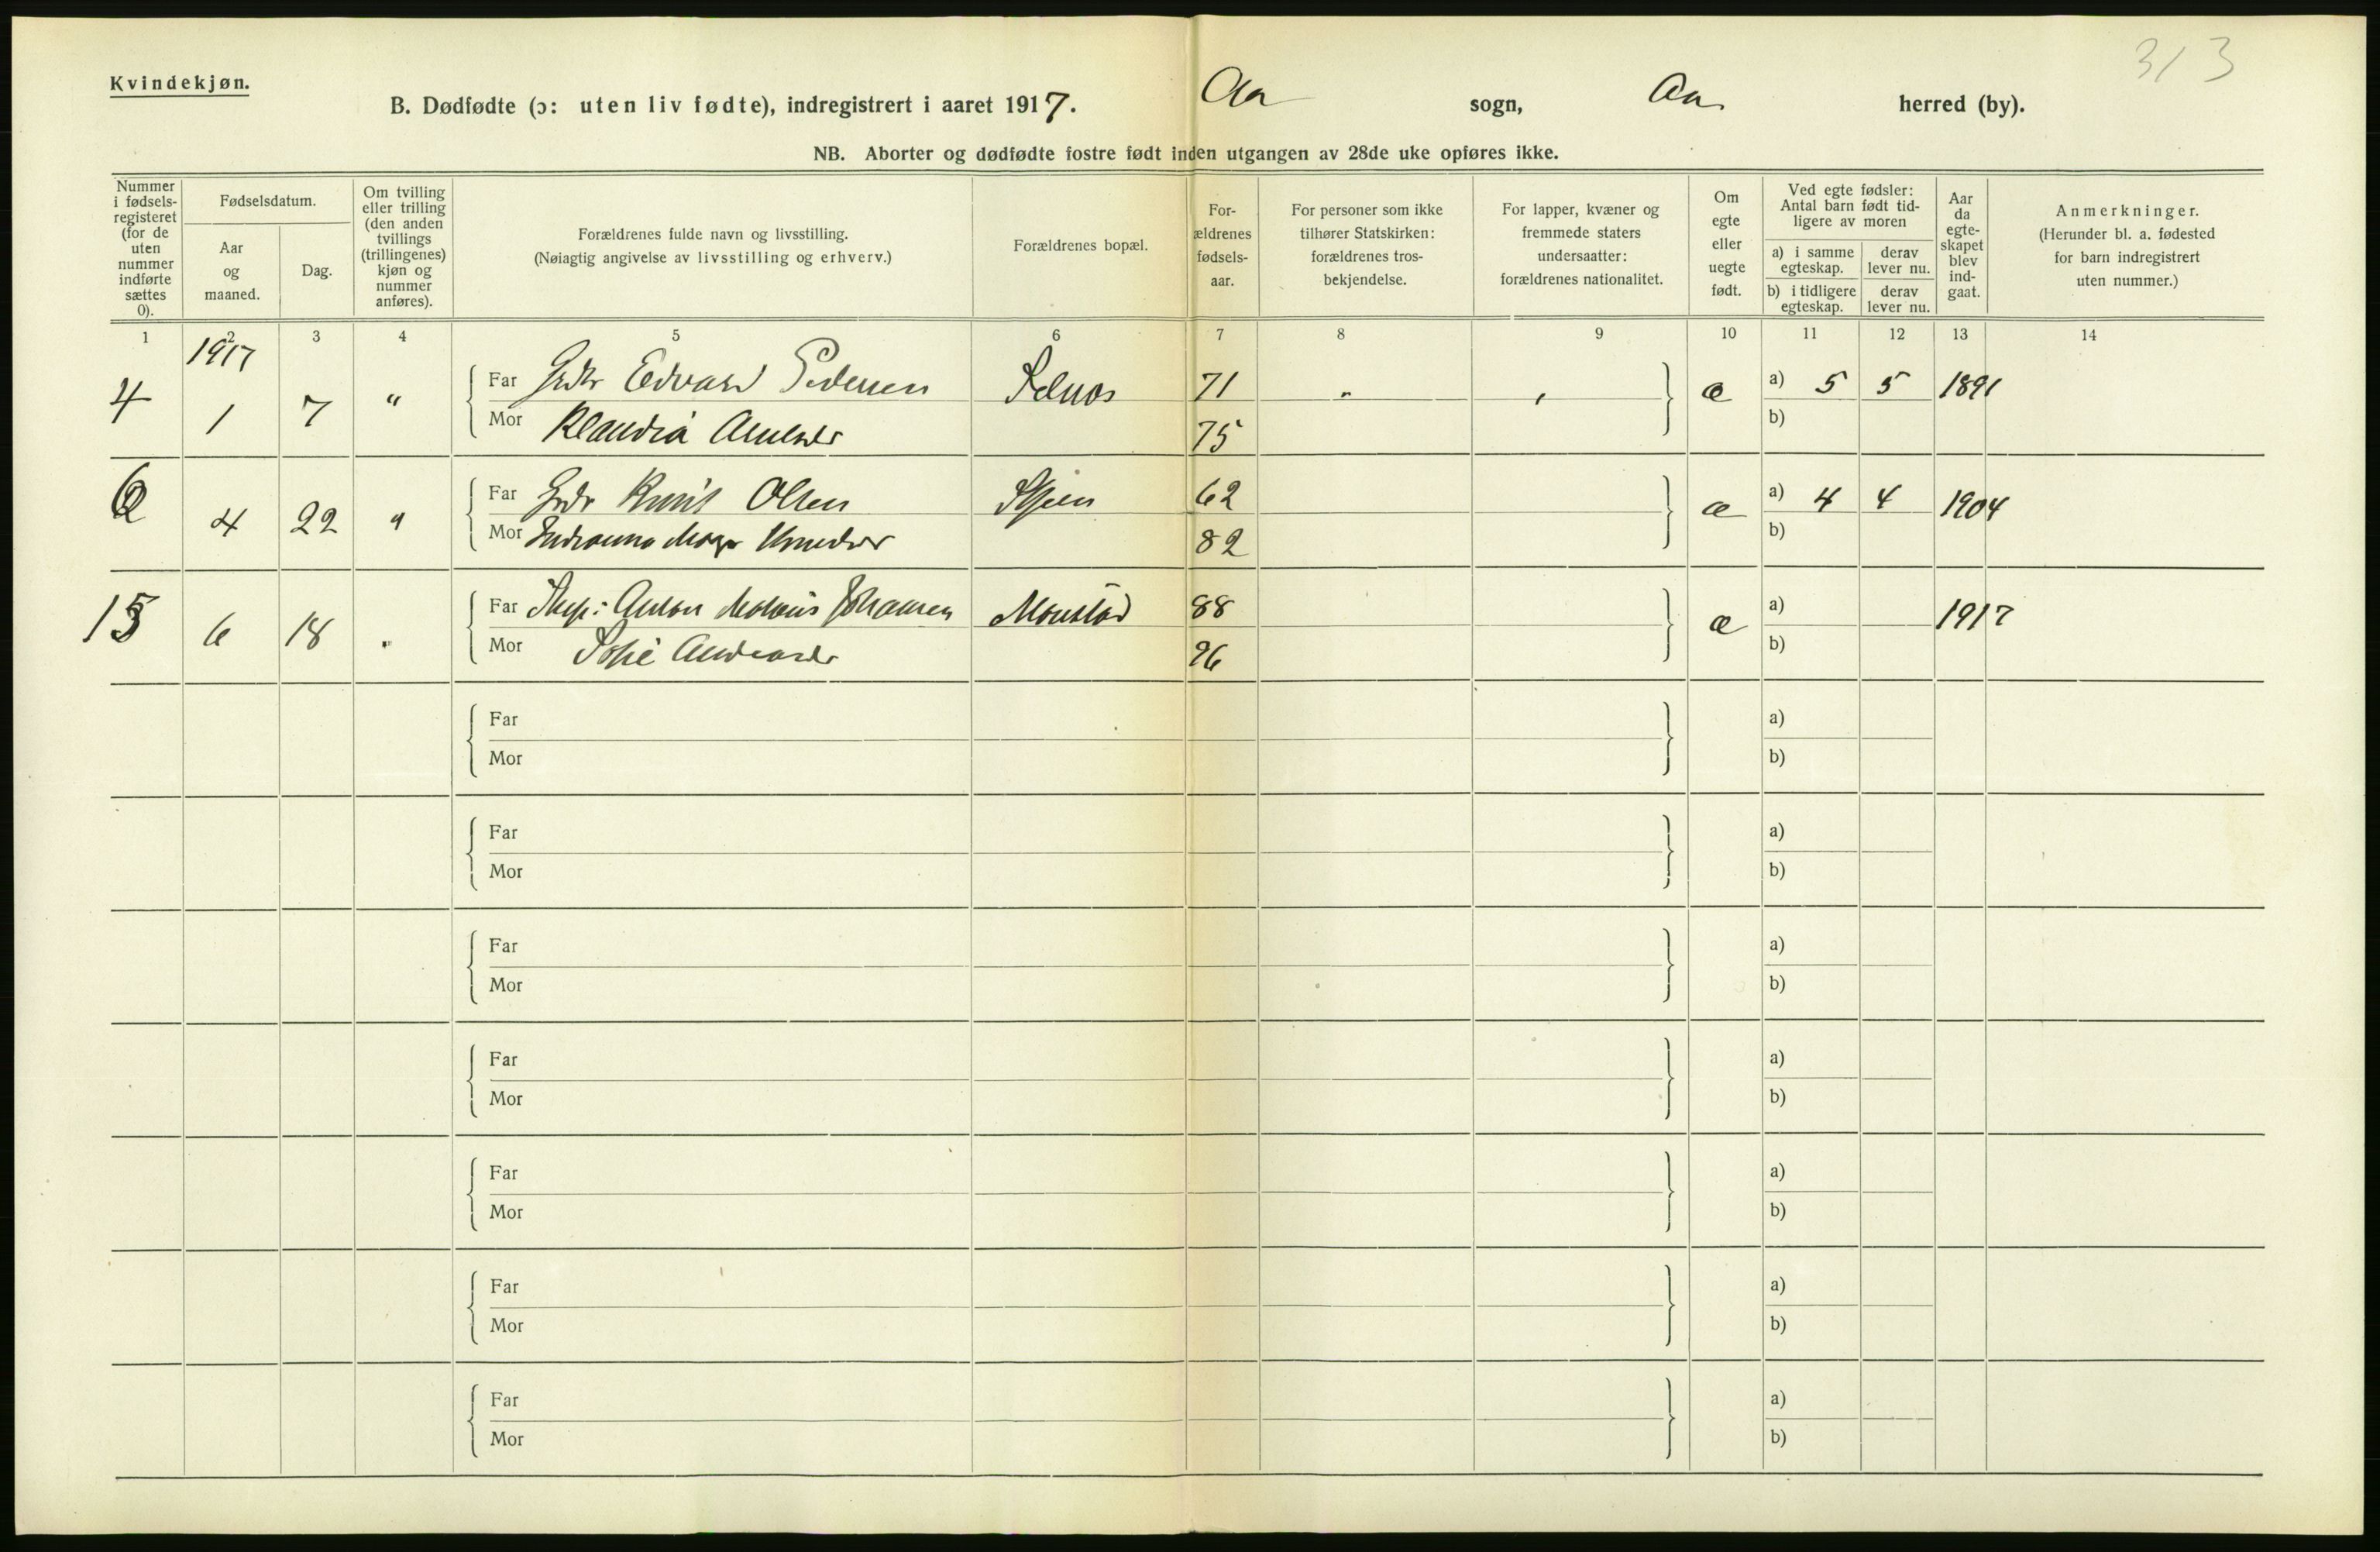 313
Kvindekjøn.
B. Dødfødte (ɔ: uten liv fødte), indregistrert i aaret 1917. Aa sogn, Aa herred (by).
NB. Aborter og dødfødte fostre født inden utgangen av 28de uke opføres ikke.
Nummer i fødsels-registeret (for de uten nummer indførte sættes 0).
Fødselsdatum.
Aar og maaned.
Dag.
Om tvilling eller trilling (den anden tvillings (trillingenes) kjøn og nummer anføres).
Forældrenes fulde navn og livsstilling.
(Nøiagtig angivelse av livsstilling og erhverv.)
Forældrenes bopæl.
For-ældrenes fødsels-aar.
For personer som ikke tilhører Statskirken: forældrenes tros-bekjendelse.
For lapper, kvæner og fremmede staters undersaatter: forældrenes nationalitet.
Om egte eller uegte født.
Ved egte fødsler: Antal barn født tid-ligere av moren
a) i samme egteskap. derav lever nu.
b) i tidligere egteskap. derav lever nu.
Aar da egte-skapet blev ind-gaat.
Anmerkninger.
(Herunder bl. a. fødested for barn indregistrert uten nummer.)
1 2 3 4 5 6 7 8 9 10 11 12 13 14
1917
4 1 7 " Far Gdbr Edvard Pedersen 71 " " æ a) 5 5 1891
Mor Klaudia 75 b)
6 4 22 " Far Gdbr Knut Olsen 62 æ a) 4 4 1904
Mor 82 b)
15 6 18 " Far Anton Johansen 88 æ a) 1917
Mor Sofie 96 b)
Far a)
Mor b)
Far a)
Mor b)
Far a)
Mor b)
Far a)
Mor b)
Far a)
Mor b)
Far a)
Mor b)
Far a)
Mor b)